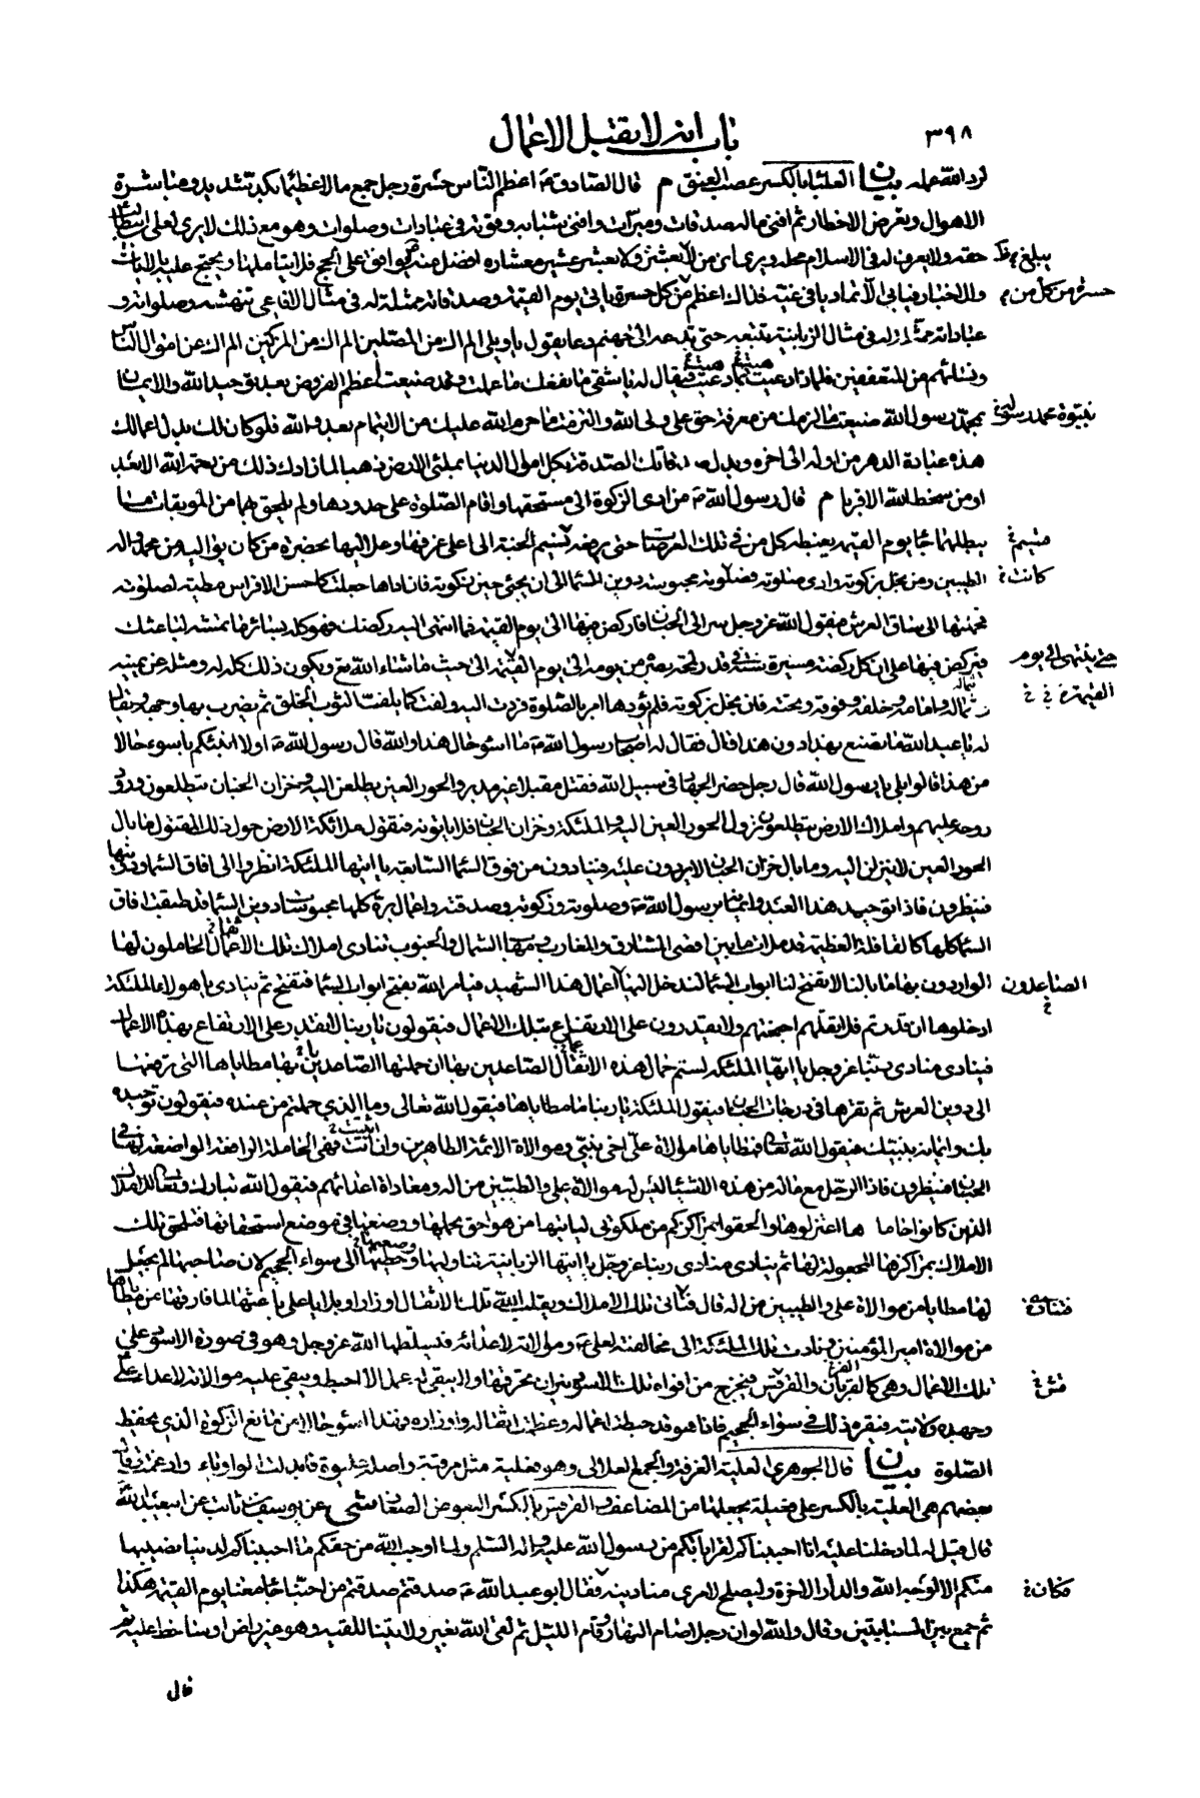 ٣٩٨
باب انه لا يقبل الاعمال
لرد الله عمله بيان العلبا بالكسر عصب العنق م قال الصادق ع اعظم الناس حسرة رجل جمع مالا عظيما بكد شديد ومباشرة
الاهوال وتعرض الاخطار ثم افنى ماله صدقات ومبرات وافنى شبابه وقوته في عبادات وصلوات وهو مع ذلك لا يرى لعلى ابن ابيطالب
حقه ولا يعرف له في الاسلام محله ويرى ان من لا بعشره ولا بعشر عشير معشاره افضل منه يواقف على الحجج فلا يتاملها ويحتج عليه بالايات
والاخبار فيابى الا تماديا في غيه فذاك اعظم من كل حسرة ياتي يوم القيمة وصدقاته ممثلة له في مثال الافاعي تنهشه وصلواته و
عباداته ممثلة له في مثال الزبانية تتبعه حتى تدعه الى جهنم دعا يقول يا ويلى الم اك من المصلين الم اك من المزكين الم اك عن اموال الناس
ونسائهم من المتعففين فلماذا دهيت بما دهيت فيقال له يا شقى ما نفعك ما عملت وقد ضيعت اعظم الفروض بعد توحيد الله والايمان
بمحمد رسول الله ضيعت ما لزمك من معرفة حق على ولى الله والتزمت ما حرم الله عليك من الايتمام بعدو الله فلو كان لك بدل اعمالك
هذه عبادة الدهر من اوله الى اخره وبدل صدقاتك الصدقة بكل اموال الدنيا بملئ الارض ذهبا لما زادك ذلك من رحمة الله الا بعدا
او من سخط الله الا قربا م قال رسول الله ص من ادى الزكوة الى مستحقها واقام الصلوة على حدودها ولم يلحق بهما من الموبقات ما
يبطلهما جاء يوم القيمة يغبطه كل من في تلك العرصات حتى يرفعه نسيم الجنة الى اعلى غرفها وعلاليها بحضرة من كان يواليه من محمد واله
الطيبين ومن بخل بزكوته وادى صلوته فصلوته محبوسة دوين السماء الى ان يجئ حين زكوته فان اداها جعلت كاحسن الافراس مطية لصلوته
فحملتها الى ساق العرش فيقول الله عز وجل سر الى الجنان فاركض فيها الى يوم القيمة فما انتهى اليه ركضك فهو كله بسائر ما تمسه لباعثك
فيركض فيها على ان كل ركضة مسيرة سنة في قدر لمحة بصره من يومه الى يوم القيمة الى حيث ما شاء الله تع ويكون ذلك كله له ومثله عن يمينه
وشماله وامامه وخلفه وفوقه وتحته فان بخل بزكوته فلم يؤدها امر بالصلوة فردت اليه ولفت كما يلف الثوب الخلق ثم يضرب بها وجهه ويقال
له يا عبد الله ما تصنع بهذا دون هذا قال فقال له اصحاب رسول الله ص ما اسوء حال هذا والله قال رسول الله ص اولا انبئكم باسوء حالا
من هذا قالوا بلى يا رسول الله قال رجل حضر الجهاد في سبيل الله فقتل مقبلا غير مدبر والحور العين يطلعن اليه وخزان الجنان يتطلعون ورود
روحه عليهم واملاك الارض يتطلعون نزول الحور العين اليه والملئكة وخزان الجنان فلا ياتونه فتقول ملائكة الارض حول ذلك المقتول ما بال
الحور العين لا ينزلن اليه وما بال خزان الجنان لا يردون عليه فينادون من فوق السماء السابعة يا ايتها الملئكة انظروا الى افاق السماء ودوينها
فينظرون فاذا توحيد هذا العبد وايمانه برسول الله ص وصلوته وزكوته وصدقته واعمال بره كلها محبوسات دوين السماء قد طبقت افاق
السماء كلها كالقافلة العظيمة قد ملات ما بين اقصى المشارق والمغارب ومهاب الشمال والجنوب تنادى املاك تلك الاعمال الحاملون لها
الواردون بها ما بالنا لا تفتح لنا ابواب السماء لندخل اليها اعمال هذا الشهيد فيامر الله بفتح ابواب السماء فتفتح ثم ينادى يا هؤلاء الملئكة
ادخلوها ان قدرتم فلا تقلهم اجنحتهم ولا يقدرون على الارتفاع بتلك الاعمال فيقولون يا ربنا لا نقدر على الارتفاع بهذه الاعمال
فينادى منادى ربنا عز وجل يا ايها الملئكة لستم حمال هذه الاثقال الصاعدين بها ان حملتها الصاعدين بها مطاياها التى ترفعها
الى دوين العرش ثم تقرها في درجات الجنان فيقول الملئكة يا ربنا ما مطاياها فيقول الله تعالى وما الذى حملتم من عنده فيقولون توحيده
بك وايمانه بنبيك فيقول الله تعالى فمطاياها موالاة على اخى نبيى وموالاة الائمة الطاهرين فان اتت فهى الحاملة الرافعة الواضعة لها في
الجنان فينظرون فاذا الرجل مع ماله من هذه الاشياء ليس له موالاة على والطيبين من اله ومعاداة اعدائهم فيقول الله تبارك وتعالى للاملاك
الذين كانوا حامليها اعتزلوها والحقوا بمراكزكم من ملكوتى لياتيها من هو احق بحملها ووضعها في موضع استحقاقها فتلحق تلك
الاملاك بمراكزها المجعولة لها ثم ينادى منادى ربنا عز وجل يا ايتها الزبانية تناوليها وحطيها الى سواء الجحيم لان صاحبها لم يجعل
لها مطايا من موالاة على والطيبين من اله قال فتاتى تلك الاملاك ويقلب الله تلك الاثقال اوزارا وبلايا على باعثها لما فارقها عن مطاياها
من موالاة امير المؤمنين ونادت تلك الملئكة الى مخالفته لعلى ع وموالاته لاعدائه فيسلطها الله عز وجل وهو في صورة الاسود على
تلك الاعمال وهى كالغربان والقرقس فيخرج من افواه تلك الاسود نيران تحرقها ولا يبقى له عمل الا احبط ويبقى عليه موالاته لاعداء على
وجحده ولايته فيقره ذلك في سواء الجحيم فاذا هو قد حبطت اعماله وعظمت اثقاله واوزاره فهذا اسوء حالا من مانع الزكوة الذى يحفظ
الصلوة بيان قال الجوهرى العلية الغرفة والجمع العلالى وهو فعيلة مثل مريقة واصله عليوة فابدلت الواو ياء وادغمت وقال
بعضهم هى العلية بالكسر على فعيلة يجعلها من المضاعف والقرقس بالكسر البعوض الصغار شى عن يوسف بن ثابت عن ابيعبد الله ع
قال قيل له لما دخلنا عليه انا احببناكم لقرابتكم من رسول الله عليه واله السلم ولما اوجب الله من حقكم ما احببناكم لدنيا نصيبها
منكم الا لوجه الله والدار الاخرة وليصلح لامرئ منا دينه فقال ابو عبد الله ع صدقتم صدقتم من احبنا جاء معنا يوم القيمة هكذا
ثم جمع بين السبابتين وقال والله لو ان رجلا صام النهار وقام الليل ثم لقى الله بغير ولايتنا للقيه وهو غير راض او ساخط عليه
قال
يبلغ
حسرة من كل من
بنبوة محمد رسول
كانت
حتى ينتهى الى يوم
القيمة
الصاعدون
فكان